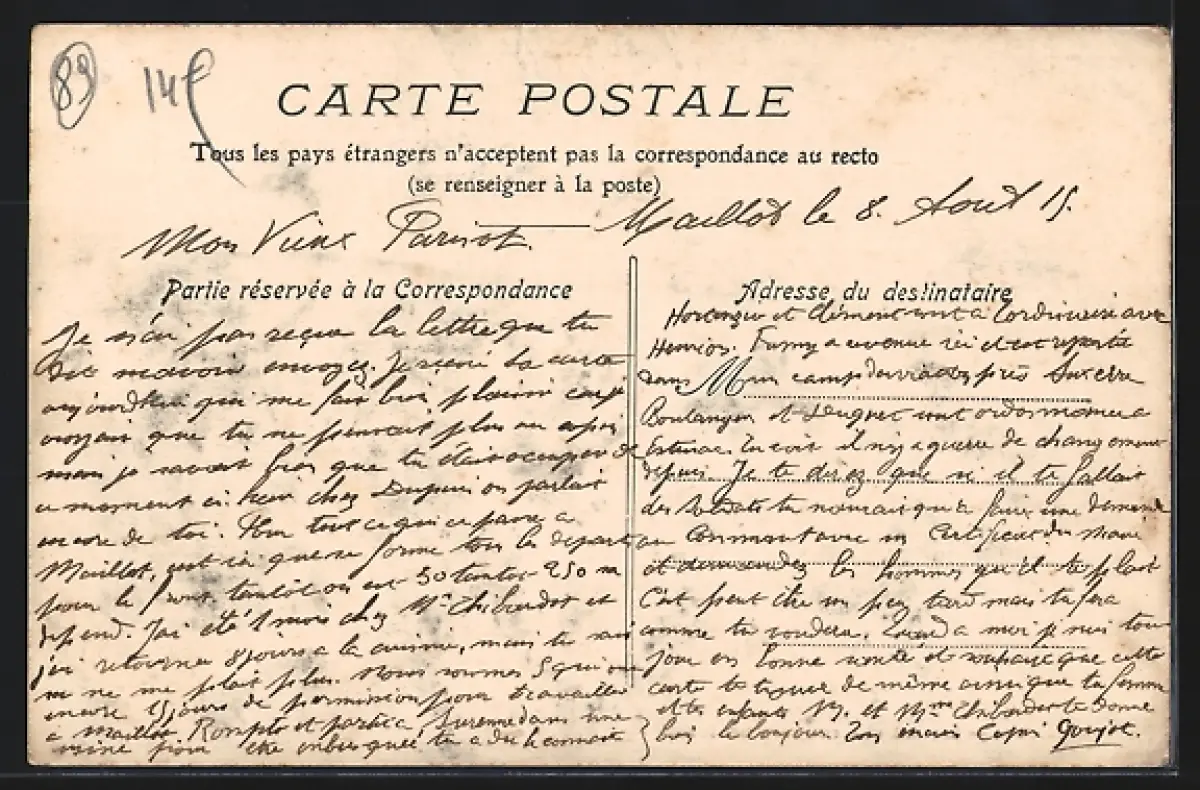 89
14€
CARTE POSTALE
Tous les pays étrangers n'acceptent pas la correspondance au recto
(se renseigner à la poste)
Maillot le 8. Aout 15.
Mon Vieux Parisot.
Partie réservée à la Correspondance
Je n'ai pas reçu la lettre que tu
dit mavoir envoyez. Je recoi ta carte
aujourd'hui qui me fait bien plaisir car je
croyais que tu ne pensait plus au copin
mais je savait bien que tu étais occuper
ce moment ci. hier chez Dupuis on parlait
encore de toi. Pour tout ce qui ce passe a
Maillot, c'est ici que se forme tous les départ
pour le front tantôt on est 50 tantot 250 sa
depend. J'ai été 1 mois chez Mr Chibardot et
j'ai retourner 8 jours a la cuisine, mais tu sais
sa ne me plait plus. Nous sommes 5 qui ont
encore 15 jours de permission pour travailler
a Maillot. et parti a dans une
usine pour être embusqué tu a du le connaitre
Adresse du destinataire
et Clément sont a l'ordinaire avec
Henrion. a revenue ici et est reparti
dans un camp près
Boulanger et sont ordonnance a
Tu voit il n'y a guere de changement
depuis. Je te direz que si il te fallait
des Soldats tu n'aurais qu'a faire une demande
au Commant avec un Certificat du Maire
et demandez les hommes qu'il te plait
C'est peut être un peu tard mais tu fera
comme tu voudera. Quand a moi je suis tou
jour en bonne santé et souhaite que cette
carte te trouve de même ainsi que ta femme
et tes enfants M. et Mme Chibardot te donne
bien le bonjour. Ton